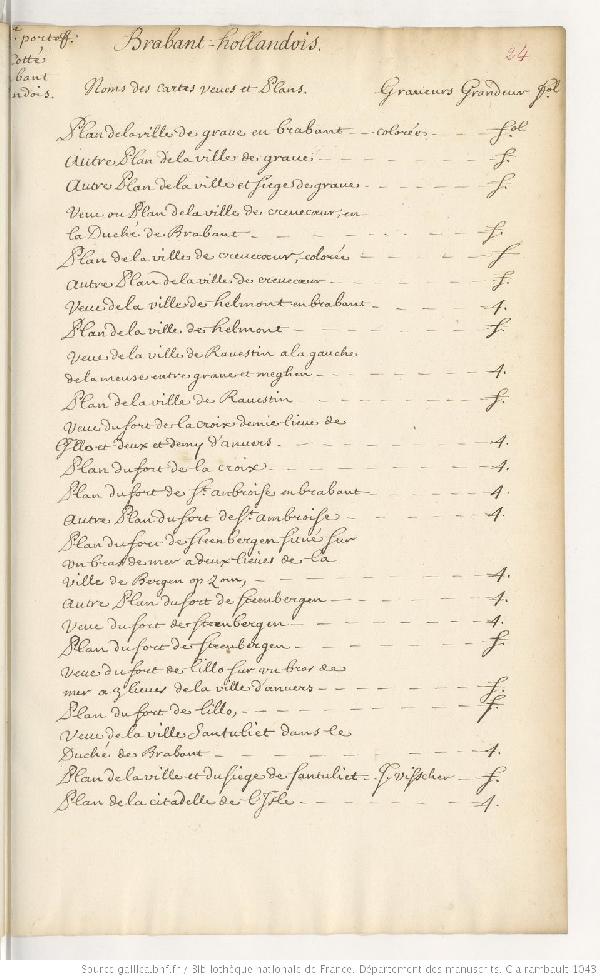 porteff.
Cotté
bant
ndois.
Brabant-hollandois.
24
Noms des cartes veues et Plans. Graveurs Grandeur fol
Plan de la ville de grave en brabant - colorée - fol
Autre Plan de la ville de grave - f.
Autre Plan de la ville et siege de grave - f.
Veue ou Plan de la ville de crevecœur, en
la Duché de Brabant - f.
Plan de la ville de crevecœur, colorée - f
Autre Plan de la ville de crevecœur - f.
Veue de la ville de helmont en brabant - 4.
Plan de la ville de helmont - f.
Veue de la ville de Ravestin a la gauche
de la meuse entre grave et meghen - 4.
Plan de la ville de Ravestin - f.
Veue du fort de la croix demie lieue de
Lillo et deux et demy d'anvers - 4.
Plan du fort de la croix - 4.
Plan du fort de St. ambroise en brabant - 4.
Autre Plan du fort de St. ambroise - 4.
Plan du fort de steenbergen situé sur
un bras de mer a deux lieües de la
ville de Bergen op Zom, - 4.
Autre Plan du fort de steenbergen - 4.
Veue du fort de steenbergen - 4.
Plan du fort de steenbergen - f.
Veue du fort de lillo sur un bras de
mer a 3 lieues de la ville d'anvers - f.
Plan du fort de lillo, - f.
Veue de la ville Santuliet dans le
Duché de Brabant - 4.
Plan de la ville et du siege de santuliet - J. visscher - f.
Plan de la citadelle de l'Isle - 4.
Source gallica.bnf.fr / Bibliothèque nationale de France. Département des manuscrits. Clairambault 1043